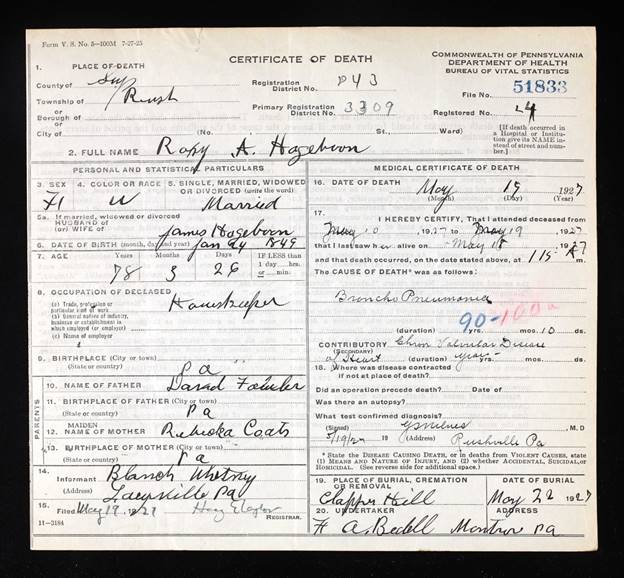 Form V. S. No. 5—100M 7-27-25
CERTIFICATE OF DEATH
COMMONWEALTH OF PENNSYLVANIA
DEPARTMENT OF HEALTH
BUREAU OF VITAL STATISTICS
1. PLACE OF DEATH
County of
Registration District No. 843
File No. 51833
Township of Rush
or
Borough of
or
Primary Registration District No. 3309
Registered No. 24
City of (No. St. Ward)
[If death occurred in a Hospital or Institution give its NAME instead of street and number.]
2. FULL NAME A. Hageboon
PERSONAL AND STATISTICAL PARTICULARS
3. SEX
4. COLOR OR RACE W
5. SINGLE, MARRIED, WIDOWED OR DIVORCED (write the word) Married
5a. If married, widowed or divorced
HUSBAND of
(or) WIFE of James Hageboon
6. DATE OF BIRTH (month, day and year) Jan 24 1849
7. AGE Years Months Days IF LESS than
78 3 26 1 day hrs. or min.
8. OCCUPATION OF DECEASED
(a) Trade, profession or particular kind of work Housekeeper
(b) General nature of industry, business or establishment in which employed (or employer)
(c) Name of employer
9. BIRTHPLACE (City or town)
(State or country) Pa
PARENTS
10. NAME OF FATHER David
11. BIRTHPLACE OF FATHER (City or town)
(State or country) Pa
12. MAIDEN NAME OF MOTHER Coats
13. BIRTHPLACE OF MOTHER (City or town)
(State or country) Pa
14. Informant Blanch Whitney
(Address) Laceyville Pa
15. Filed May 19 1927
REGISTRAR.
11-3184
MEDICAL CERTIFICATE OF DEATH
16. DATE OF DEATH May 19 1927
(Month) (Day) (Year)
17. I HEREBY CERTIFY, That I attended deceased from
10 1927 to May 19 1927
that I last saw her alive on May 18 1927
and that death occurred, on the date stated above, at M
The CAUSE OF DEATH* was as follows:
Broncho Pneumonia
90-100a
(duration) yrs. mos. 10 ds.
CONTRIBUTORY (SECONDARY) Chron Valvular Disease
of Heart (duration) years mos. ds.
18. Where was disease contracted
if not at place of death?
Did an operation precede death? Date of
Was there an autopsy?
What test confirmed diagnosis?
(Signed) M.D
5/19/27 19 (Address) Rushville Pa
* State the DISEASE CAUSING DEATH, or in deaths from VIOLENT CAUSES, state (1) MEANS AND NATURE OF INJURY, and (2) whether ACCIDENTAL, SUICIDAL, or HOMICIDAL. (See reverse side for additional space.)
19. PLACE OF BURIAL, CREMATION OR REMOVAL
DATE OF BURIAL
Clapper Hill May 22 1927
20. UNDERTAKER ADDRESS
A. Bedell Montrose Pa